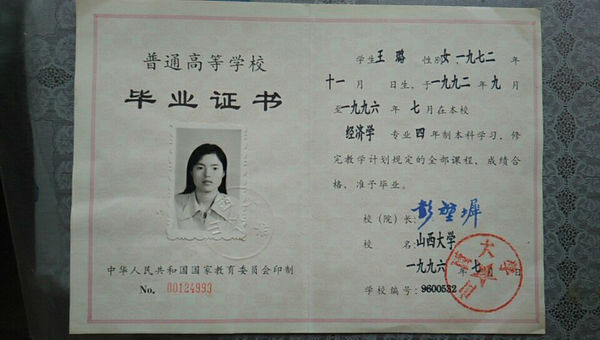 普通高等学校
毕业证书
中华人民共和国国家教育委员会印制
No. 00124993
学生 王璐 性别 女, 一九七二 年
十一 月 日生, 于 一九九二 年 九 月
至 一九九六 年 七 月在本校
经济学 专业 四 年制本科学习, 修
完教学计划规定的全部课程, 成绩合
格, 准予毕业。
校(院)长: 彭堃墀
校 名: 山西大学
一九九六 年 七 月 日
学校编号: 9600532